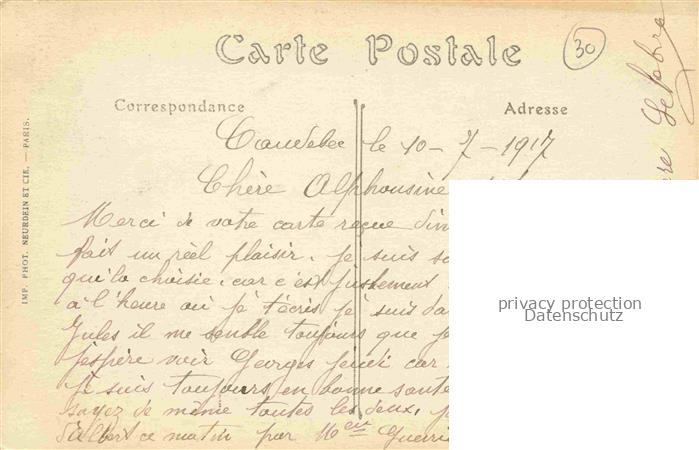 Carte Postale
30
Correspondance
Adresse
Caudebec le 10-7-1917
Chère Alphonsine
Merci de votre carte reçue
fait un réel plaisir. je suis
qui la choisie, car c'est justement
à l'heure où je t'écris je suis
Jules il me semble toujours que
j'espère voir Georges jeudi car
Je suis toujours en bonne santé
soyez de même toutes les deux,
d'Albert ce matin par
Lefebre
IMP. PHOT. NEURDEIN ET CIE. — PARIS.
privacy protection
Datenschutz